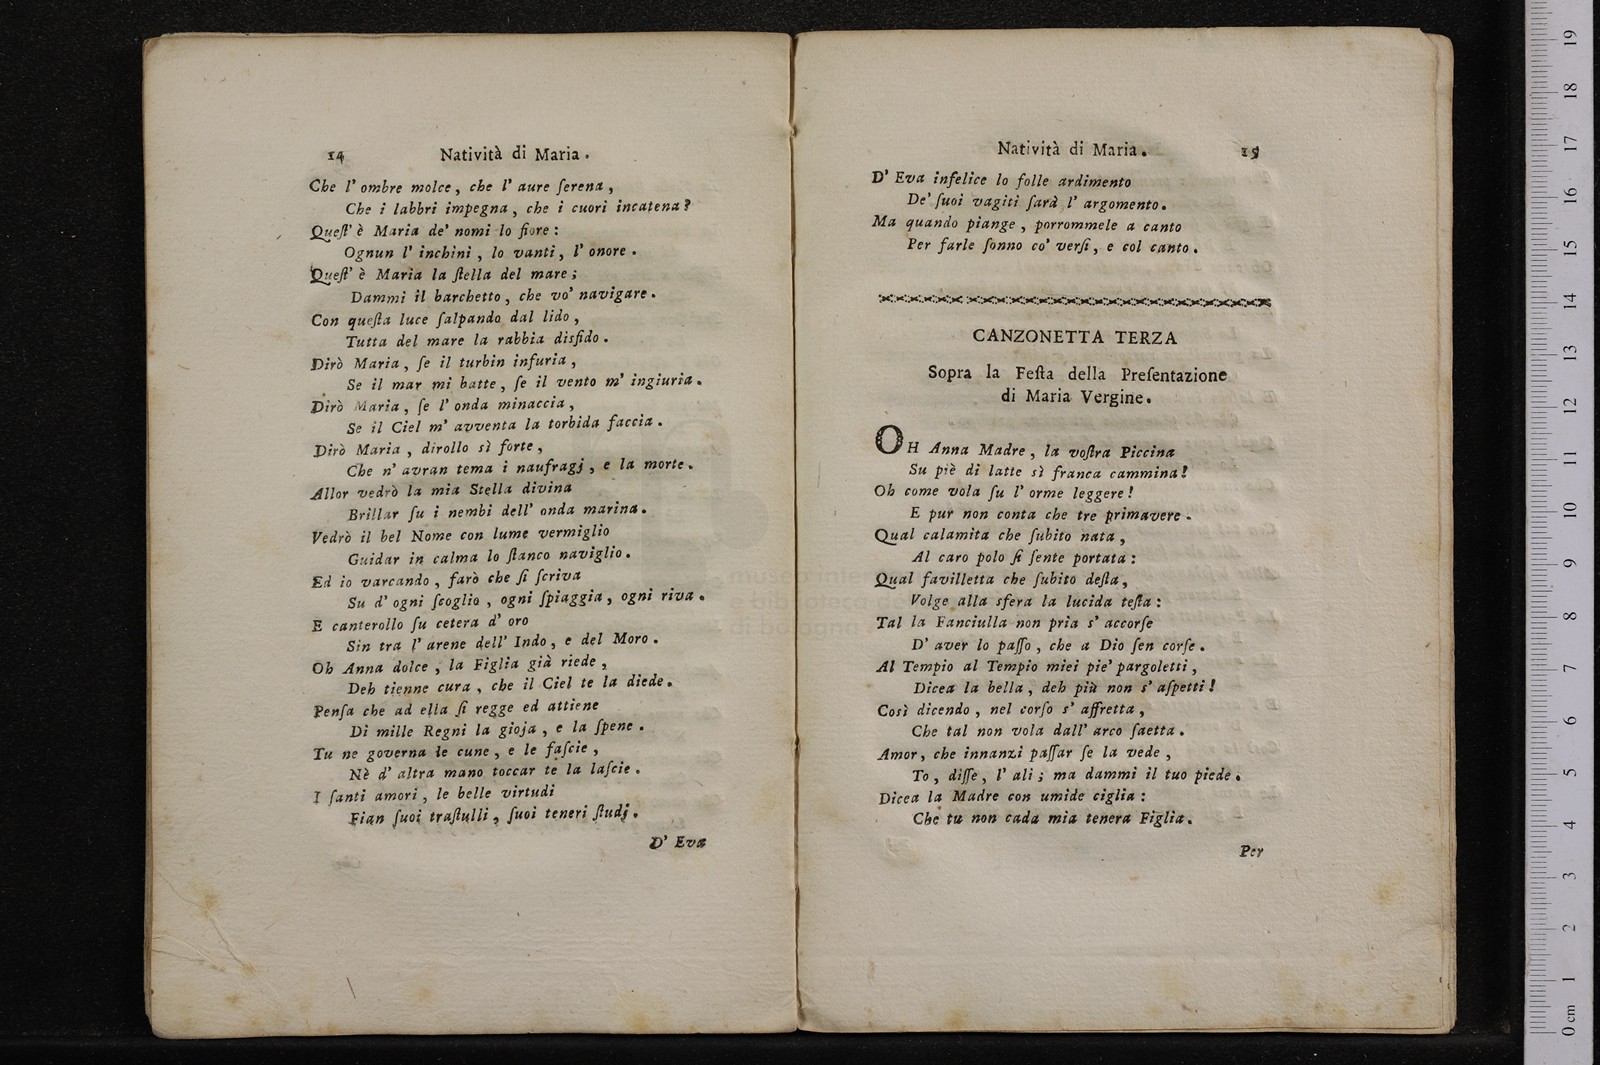 14 Natività di Maria.
Che l' ombre molce, che l' aure ſerena,
Che i labbri impegna, che i cuori incatena?
Queſt' è Maria de' nomi lo fiore:
Ognun l' inchini, lo vanti, l' onore.
Queſt' è Maria la ſtella del mare;
Dammi il barchetto, che vo' navigare.
Con queſta luce ſalpando dal lido,
Tutta del mare la rabbia disfido.
Dirò Maria, ſe il turbin infuria,
Se il mar mi batte, ſe il vento m' ingiuria.
Dirò Maria, ſe l' onda minaccia,
Se il Ciel m' avventa la torbida faccia.
Dirò Maria, dirollo sì forte,
Che n' avran tema i naufragj, e la morte.
Allor vedrò la mia Stella divina
Brillar ſu i nembi dell' onda marina.
Vedrò il bel Nome con lume vermiglio
Guidar in calma lo ſtanco naviglio.
Ed io varcando, farò che ſi ſcriva
Su d' ogni ſcoglio, ogni ſpiaggia, ogni riva.
E canterollo ſu cetera d' oro
Sin tra l' arene dell' Indo, e del Moro.
Oh Anna dolce, la Figlia già riede,
Deh tienne cura, che il Ciel te la diede.
Penſa che ad ella ſi regge ed attiene
Di mille Regni la gioja, e la ſpene.
Tu ne governa le cune, e le faſcie,
Nè d' altra mano toccar te la laſcie.
I ſanti amori, le belle virtudi
Fian ſuoi traſtulli, ſuoi teneri ſtudj.
D' Eva
Natività di Maria. 15
D' Eva infelice lo folle ardimento
De' ſuoi vagiti ſarà l' argomento.
Ma quando piange, porrommele a canto
Per farle ſonno co' verſi, e col canto.
CANZONETTA TERZA
Sopra la Feſta della Preſentazione
di Maria Vergine.
OH Anna Madre, la voſtra Piccina
Su piè di latte sì franca cammina!
Oh come vola ſu l' orme leggere!
E pur non conta che tre primavere.
Qual calamita che ſubito nata,
Al caro polo ſi ſente portata:
Qual favilletta che ſubito deſta,
Volge alla sfera la lucida teſta:
Tal la Fanciulla non pria s' accorſe
D' aver lo paſſo, che a Dio ſen corſe.
Al Tempio al Tempio miei pie' pargoletti,
Dicea la bella, deh più non s' aſpetti!
Così dicendo, nel corſo s' affretta,
Che tal non vola dall' arco ſaetta.
Amor, che innanzi paſſar ſe la vede,
To, diſſe, l' ali; ma dammi il tuo piede.
Dicea la Madre con umide ciglia:
Che tu non cada mia tenera Figlia.
Per